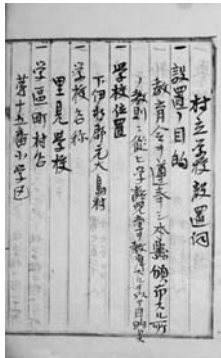 村立学校設置伺
一設置ノ目的
教育令ヲ遵奉シ本縣頒布スル所
ノ教則ニ従ヒ学齢児童ヲ教育スルヲ以テ目的トス
一学校位置
下伊那郡元大島村
一学校名称
里見学校
一学區町村名
第十五番小学区